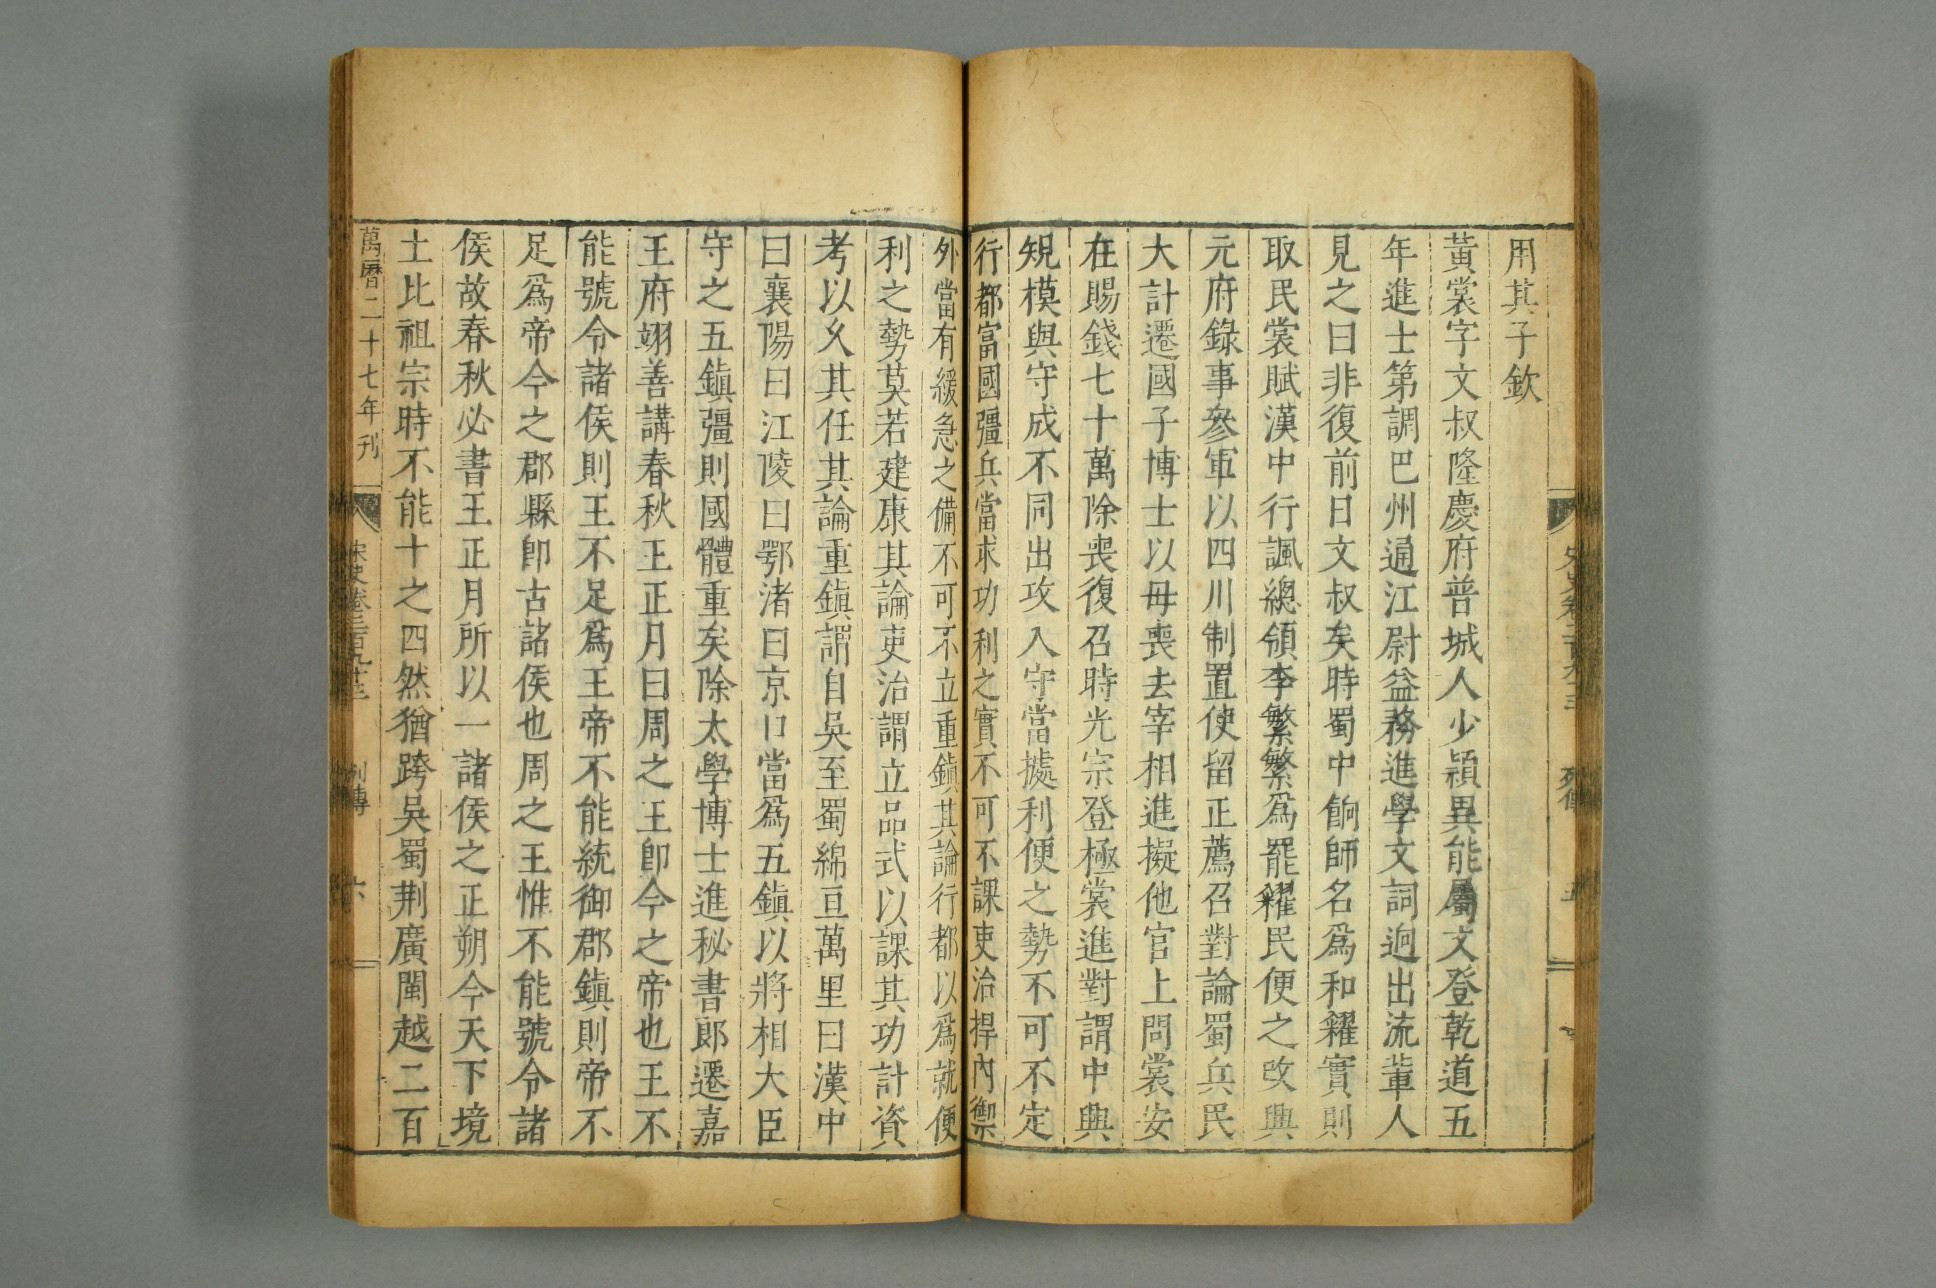 用其子欽
黃裳字文叔隆慶府普城人少穎異能屬文登乾道五
年進士第調巴州通江尉益務進學文詞迥出流輩人
見之曰非復前日文叔矣時蜀中餉師名爲和糴實則
取民裳賦漢中行諷總領李蘩蘩爲罷糴民便之改興
元府錄事參軍以四川制置使留正薦召對論蜀兵民
大計遷國子博士以母喪去宰相進擬他官上問裳安
在賜錢七十萬除喪復召時光宗登極裳進對謂中興
規模與守成不同出攻入守當據利便之勢不可不定
行都富國彊兵當求功利之實不可不課吏治捍內禦
外當有緩急之備不可不立重鎮其論行都以爲就便
利之勢莫若建康其論吏治謂立品式以課其功計資
考以久其任其論重鎮謂自吳至蜀綿亘萬里曰漢中
曰襄陽曰江陵曰鄂渚曰京口當爲五鎮以將相大臣
守之五鎮彊則國體重矣除太學博士進秘書郎遷嘉
王府翊善講春秋王正月曰周之王卽今之帝也王不
能號令諸侯則王不足爲王帝不能統御郡鎮則帝不
足爲帝今之郡縣卽古諸侯也周之王惟不能號令諸
侯故春秋必書王正月所以一諸侯之正朔今天下境
土比祖宗時不能十之四然猶跨吳蜀荆廣閩越二百
萬曆二十七年刊
宋史卷三百九十三
列傳
六